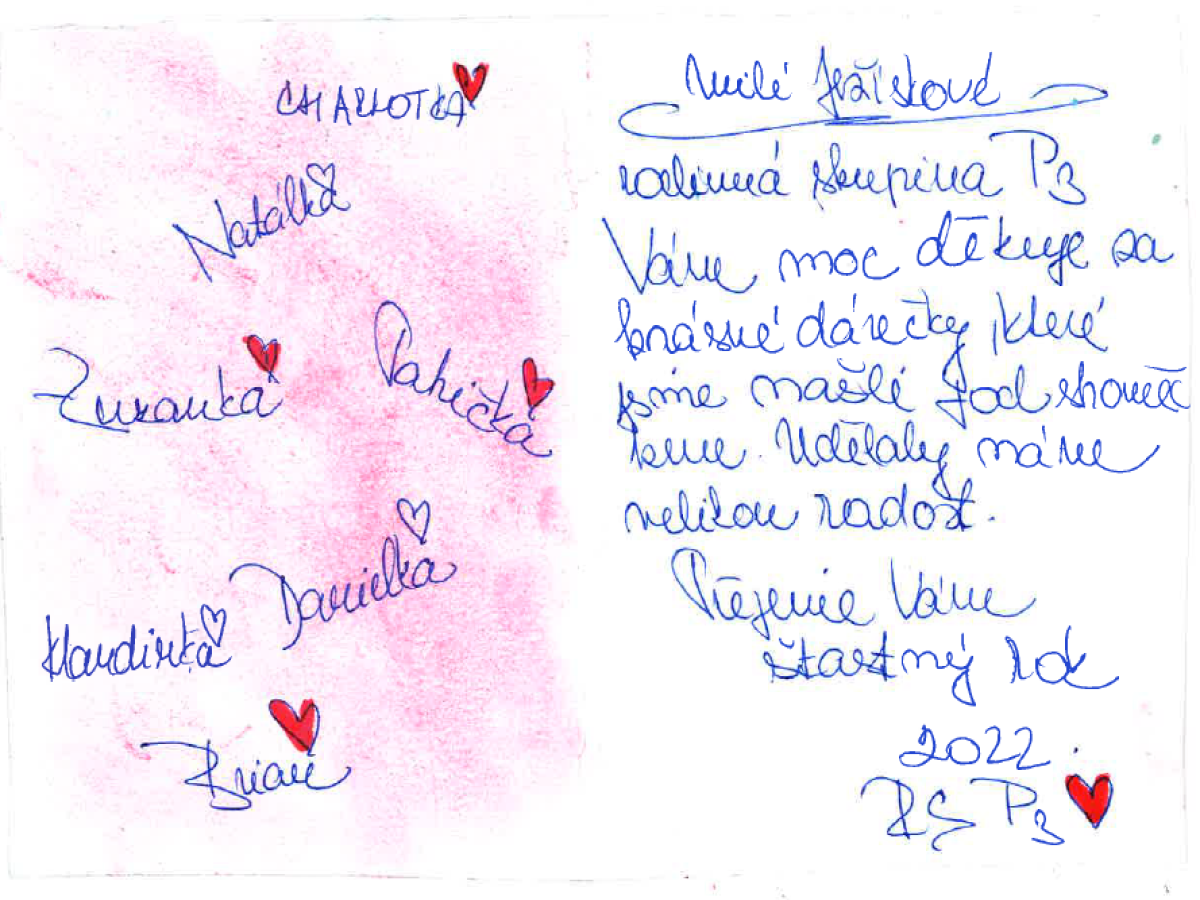 CHARLOTKA
Natálka
Zuzanka
Pahička
Danielka
Klaudinka
Brian
Milé Ježíškové
rodinná skupina P3
Vám moc děkuje za
krásné dárečky, které
jsme našli pod stromeč
kem. Udělaly nám
velikou radost.
Přejeme Vám
šťastný rok
2022.
RS P3